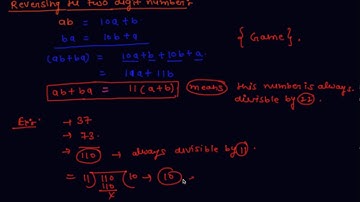 Reversing the two digit number:
ab = 10a+b
ba = 10b+a
{ Game }.
(ab+ba) = 10a+b+10b+a
= 11a+11b
ab+ba = 11(a+b) means this number is always
divisible by 22.
Ex:- → 37
→ 73
→ 110 → always divisible by 11
= 11 ) 110 ( 10 → 10.
110
x